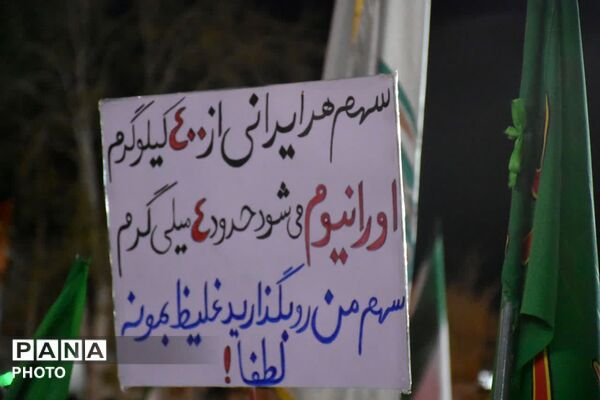 سهم هر ایرانی از ٤٠٠ کیلوگرم
اورانیوم می‌شود حدود ٤ میلی گرم
سهم من رو بگذارید غلیظ بمونه
لطفاً!
PANA
PHOTO